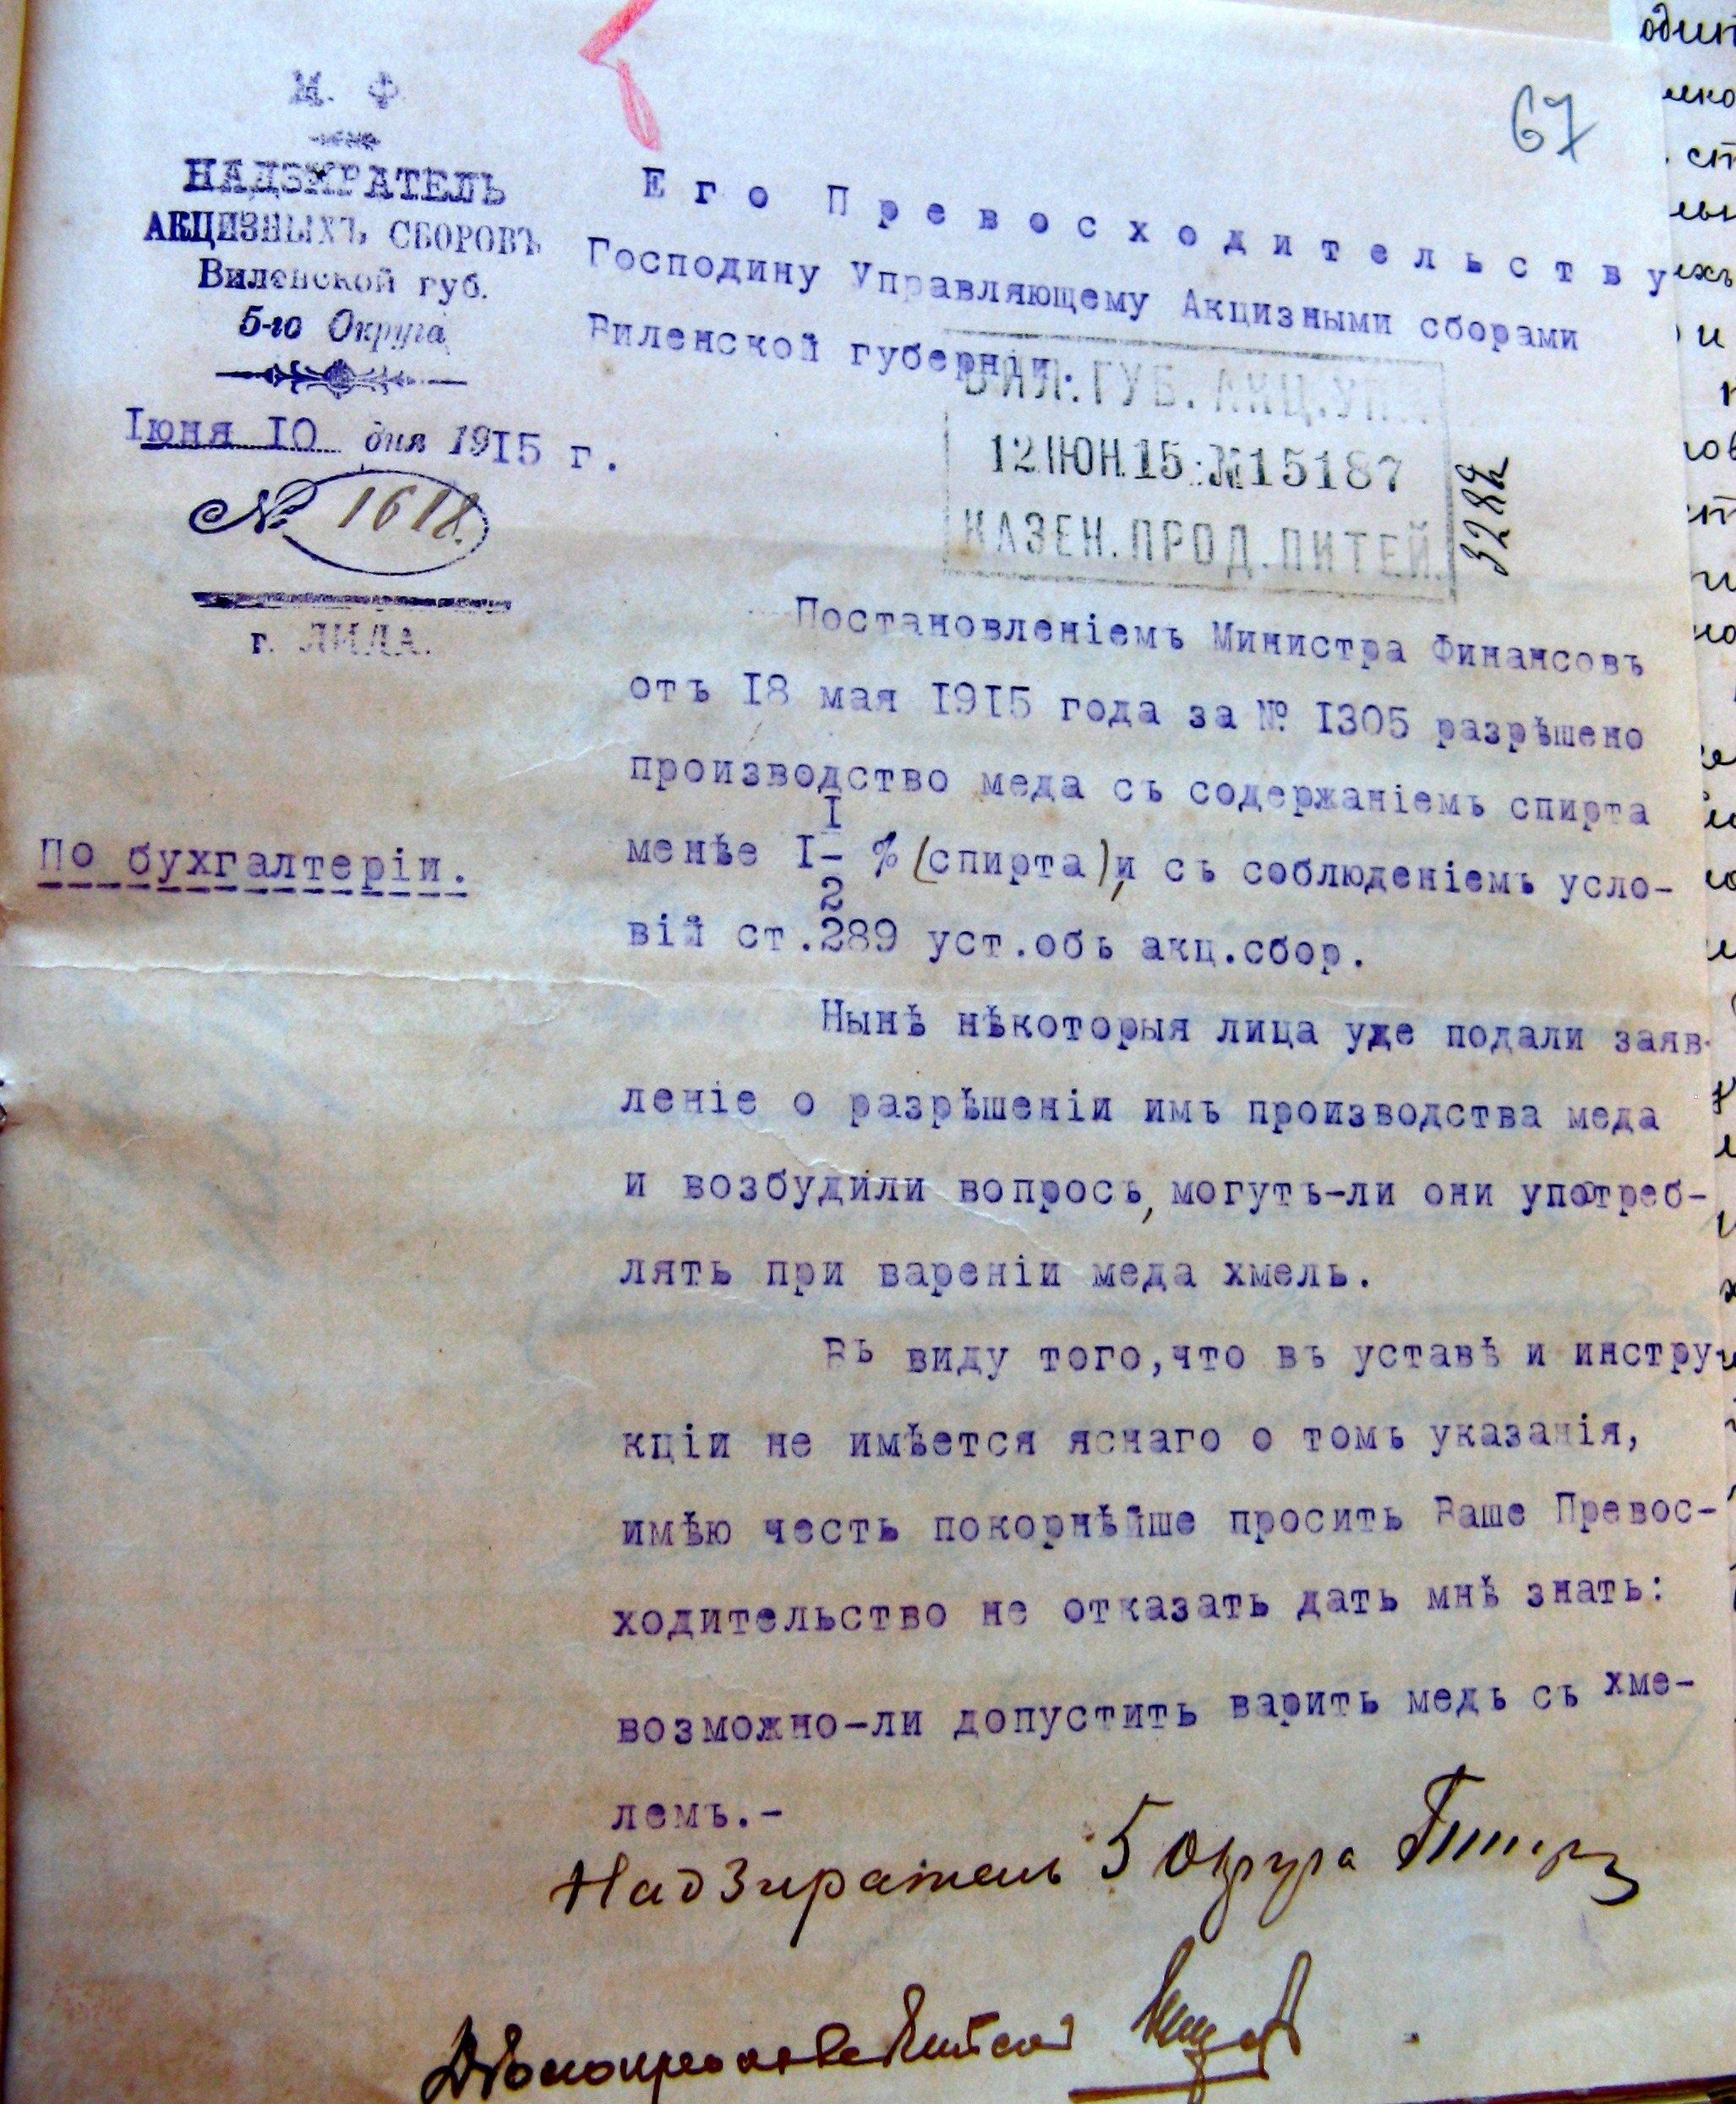 67
М. Ф
НАДЗИРАТЕЛЬ
АКЦИЗНЫХЪ СБОРОВЪ
Виленской губ.
5-го Округа
Іюня 10 дня 1915 г.
№ 1618.
г. ЛИДА.
Его Превосходительству
Господину Управляющему Акцизными сборами
Виленской губерніи.
ВИЛ. ГУБ. АКЦ. УП
12 ІЮН. 15 № 15187
КАЗЕН. ПРОД. ПИТЕЙ.
По бухгалтеріи.
Постановленіемъ Министра Финансовъ
отъ I8 мая I9I5 года за № I305 разрѣшено
производство меда съ содержаніемъ спирта
менѣе I I/2 % (спирта), и съ соблюденіемъ усло-
вій ст.289 уст.объ акц.сбор.
Нынѣ нѣкоторыя лица уже подали заяв-
леніе о разрѣшеніи имъ производства меда
и возбудили вопросъ, могутъ-ли они употреб-
лять при вареніи меда хмель.
Въ виду того,что въ уставѣ и инстру-
кціи не имѣется яснаго о томъ указанія,
имѣю честь покорнѣйше просить Ваше Превос-
ходительство не отказать дать мнѣ знать:
возможно-ли допустить варить медъ съ хме-
лемъ.-
Надзиратель 5 Округа